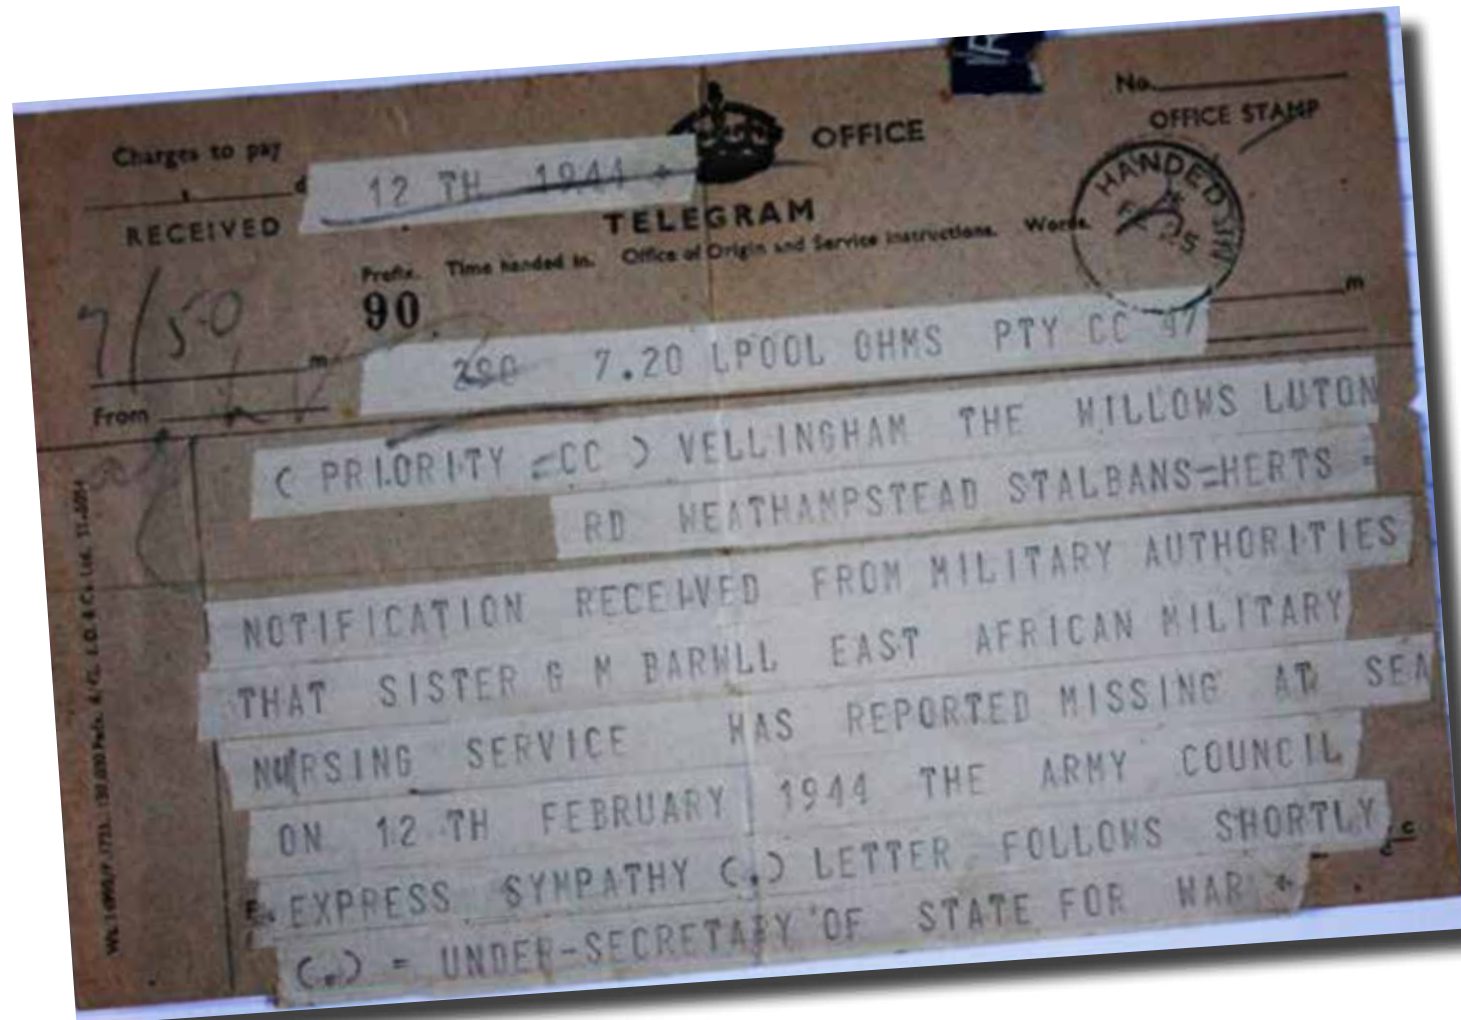 No.
OFFICE STAMP
Charges to pay
OFFICE
12 TH 1944 +
d
RECEIVED
TELEGRAM
HANDED IN
Prefix. Time handed in. Office of Origin and Service Instructions. Words.
7/50
90
m
m
7.20 LPOOL OHMS PTY CC 97
From
( PRIORITY =CC ) VELLINGHAM THE WILLOWS LUTON
RD WEATHAMPSTEAD STALBANS=HERTS =
NOTIFICATION RECEIVED FROM MILITARY AUTHORITIES
THAT SISTER G M BARWLL EAST AFRICAN MILITARY
NURSING SERVICE HAS REPORTED MISSING AT SEA
ON 12 TH FEBRUARY 1944 THE ARMY COUNCIL
EXPRESS SYMPATHY (.) LETTER FOLLOWS SHORTLY
(.) = UNDER-SECRETARY OF STATE FOR WAR +